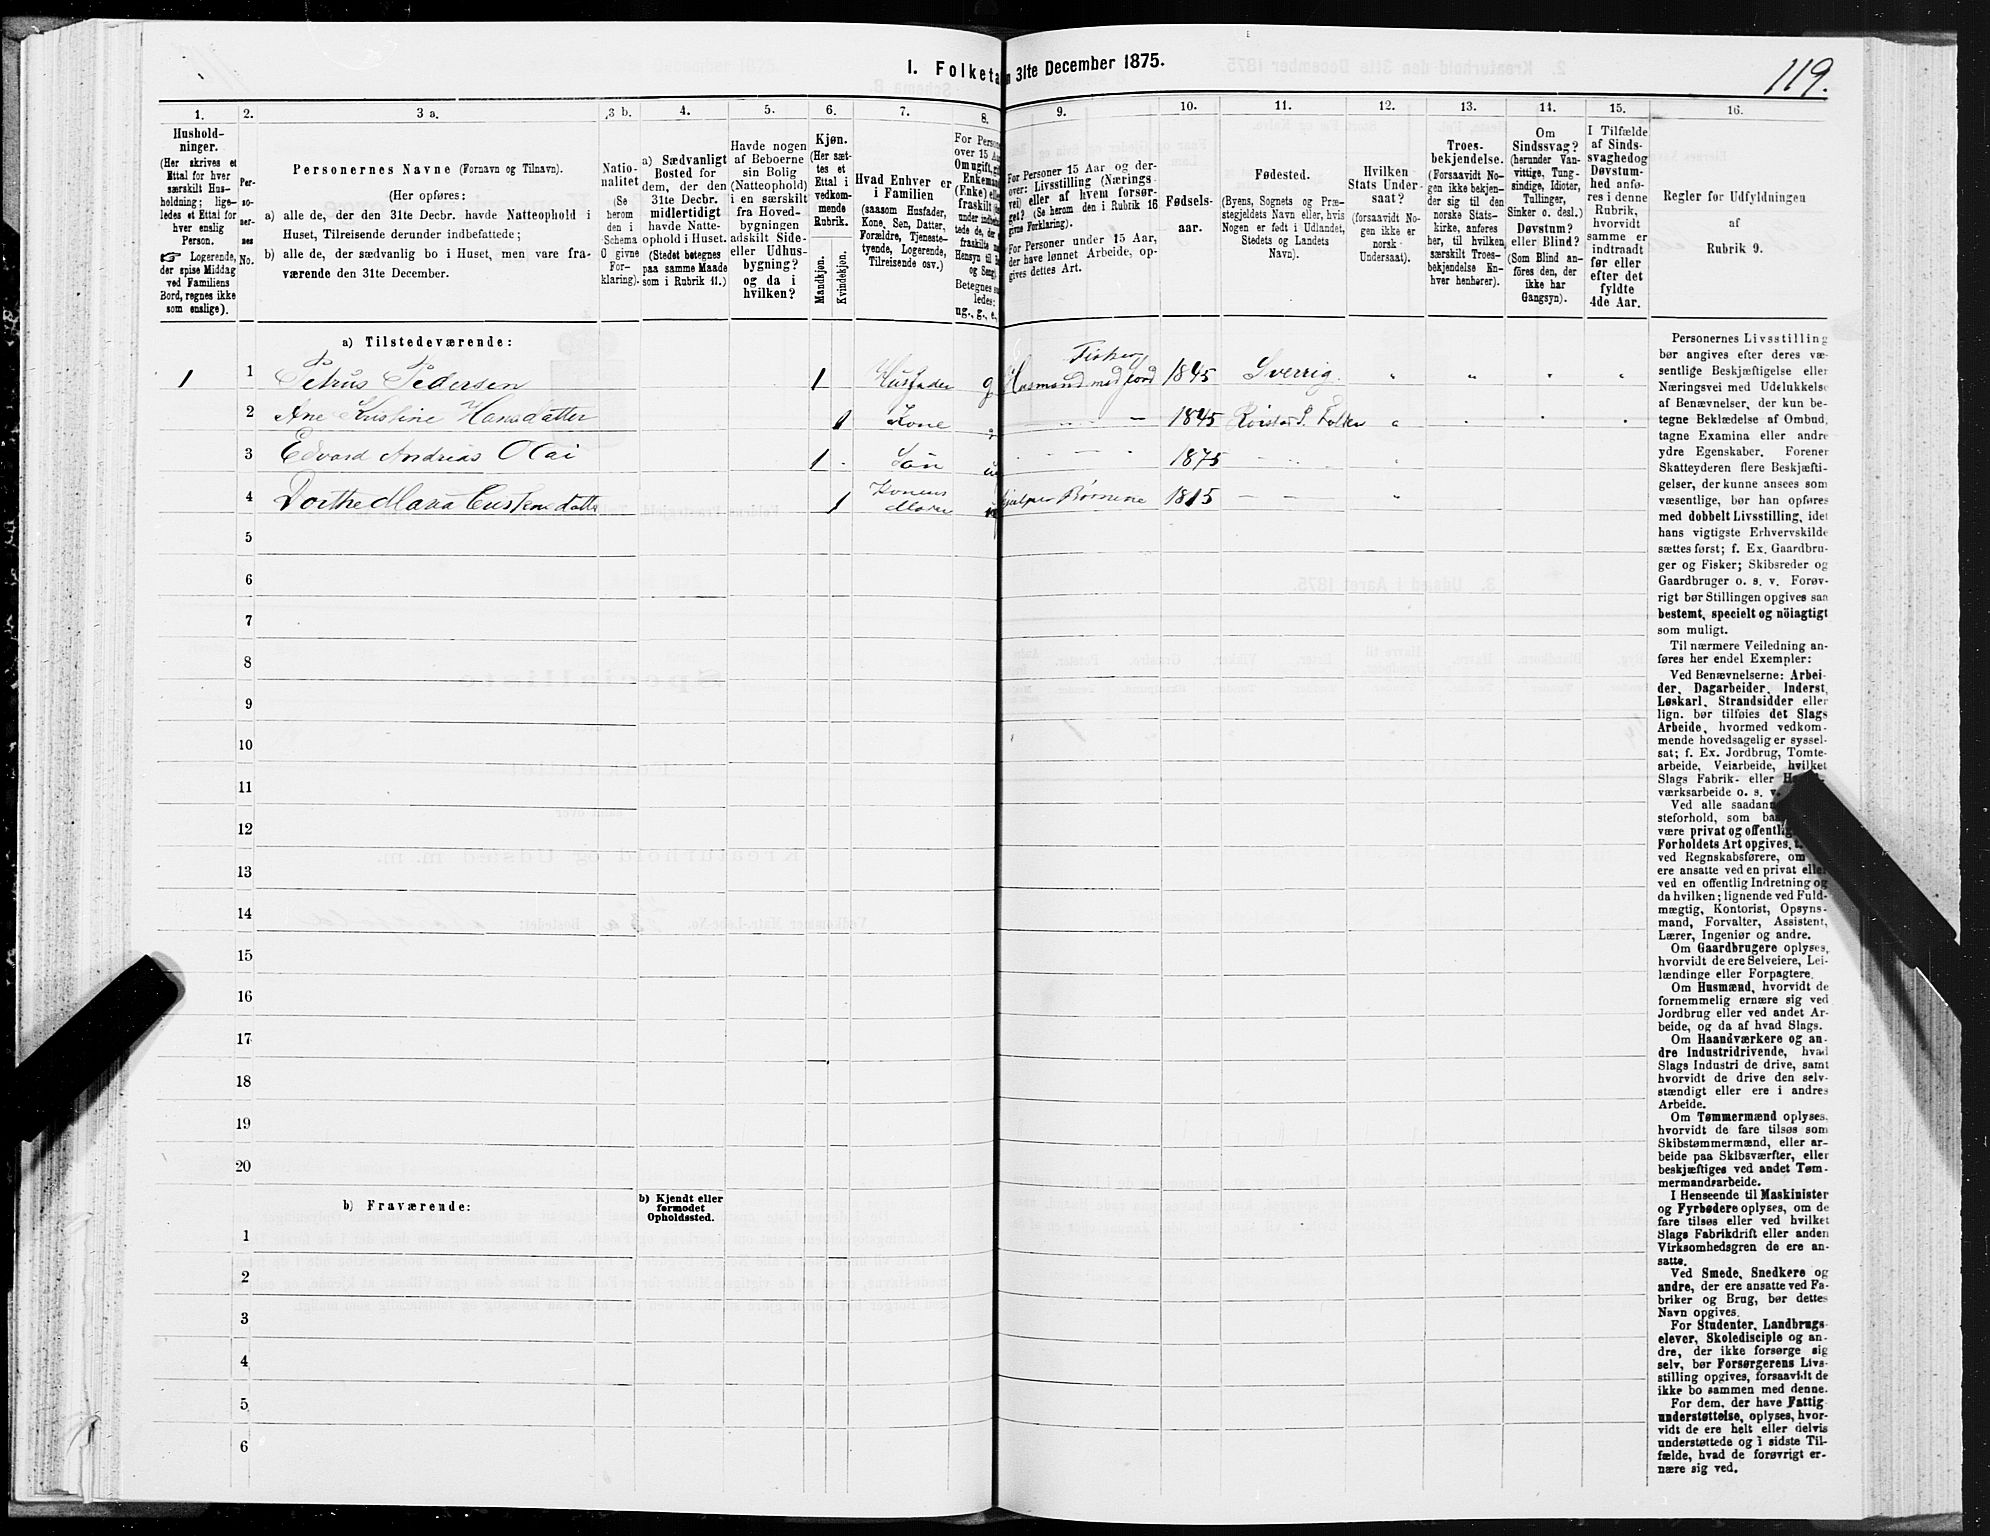 I. Folketa
n 31te December 1875.
119.
1.
2.
3 a.
3 b.
4.
5.
6.
7.
8.
9.
10.
11.
12.
13.
14.
15.
16.
Hushold-
ninger.
(Her skrives et
Ettal for hver
særskilt Hus-
holdning; lige-
ledes et Ettal for
hver enslig
Person.
☞ Logerende,
der spise Middag
ved Familiens
Bord, regnes ikke
som enslige).
Per-
so-
ner-
nes
No.
Personernes Navne (Fornavn og Tilnavn).
(Her opføres:
a) alle de, der den 31te Decbr. havde Natteophold i
Huset, Tilreisende derunder indbefattede;
b) alle de, der sædvanlig bo i Huset, men vare fra-
værende den 31te December.
Natio-
nalitet
(Se
herom
den i
Schema
O givne
For-
klaring).
a) Sædvanligt
Bosted for
dem, der den
31te Decbr.
midlertidigt
havde Natte-
ophold i Huset.
(Stedet betegnes
paa samme Maade
som i Rubrik 11.)
Havde nogen
af Beboerne
sin Bolig
(Natteophold)
i en særskilt
fra Hoved-
bygningen
adskilt Side-
eller Udhus-
bygning?
og da i
hvilken?
Kjøn.
(Her sæt-
tes et
Ettal i
vedkom-
mende
Rubrik.
Mandkjøn.
Kvindekjøn.
Hvad Enhver er
i Familien
(saasom Husfader,
Kone, Søn, Datter,
Forældre, Tjeneste-
tyende, Logerende,
Tilreisende osv.)
For Persone
over 15 Aa
Om ugift, gift
Enkemand
(Enke) elle
fraskilt
under indbefat-
tede de, de
fraskilte
Hensyn til B
og Seng
Betegnes saa
ledes:
ug., g., e.,
For Personer 15 Aar og der-
over: Livsstilling (Nærings-
vei) eller af hvem forsør-
get? (Se herom den i Rubrik 16
givne Forklaring).
For Personer under 15 Aar,
der have lønnet Arbeide, op-
gives dettes Art.
Fødsels-
aar.
Fødested.
(Byens, Sognets og Præ-
stegjeldets Navn eller, hvis
Nogen er født i Udlandet,
Stedets og Landets
Navn).
Hvilken
Stats Under-
saat?
(forsaavidt No-
gen ikke er
norsk
Undersaat).
Troes-
bekjendelse.
(Forsaavidt No-
gen ikke bekjen-
der sig til den
norske Stats-
kirke, anføres
her, til hvilken
særskilt Troes-
bekjendelse En-
hver henhører).
Om
Sindssvag?
(herunder Van-
vittige, Tung-
sindige, Idioter,
Tullinger,
Sinker o. desl.)
Døvstum?
eller Blind?
(Som Blind an-
føres den, der
ikke har
Gangsyn).
I Tilfælde
af Sinds-
svaghedog
Døvstum-
hed anfø-
res i denne
Rubrik,
hvorvidt
samme er
indtraadt
før eller
efter det
fyldte
4de Aar.
Regler for Udfyldningen
af
Rubrik 9.
a) Tilstedeværende:
1 1 Petrus Pedersen 1 Husfader g Husmand med jord Fisker 1845 Sverrig
2 Ane Kristine Hansdatter 1 Kone 1845
3 Edvard Andreas Olai 1 Søn 1875
4 Dorthe Maria 1 Konens Moder hjælper Børnene 1815
5
6
7
8
9
10
11
12
13
14
15
16
17
18
19
20
b) Fraværende:
b) Kjendt eller
formodet
Opholdssted.
1
2
3
4
5
6
Personernes Livsstilling
bør angives efter deres væ-
sentlige Beskjæftigelse eller
Næringsvei med Udelukkelse
af Benævnelser, der kun be-
tegne Beklædelse af Ombud,
tagne Examina eller andre
ydre Egenskaber. Forener
Skatteyderen flere Beskjæfti-
gelser, der kunne ansees som
væsentlige, bør han opføres
med dobbelt Livsstilling, idet
hans vigtigste Erhvervskilde
sættes først; f. Ex. Gaardbru-
ger og Fisker; Skibsreder og
Gaardbruger o. s. v. Forøv-
rigt bør Stillingen opgives saa
bestemt, specielt og nöiagtigt
som muligt.
Til nærmere Veiledning an-
føres her endel Exempler:
Ved Benævnelserne: Arbei-
der, Dagarbeider, Inderst,
Løskarl, Strandsidder eller
lign. bør tilføies det Slags
Arbeide, hvormed vedkom-
mende hovedsagelig er syssel-
sat; f. Ex. Jordbrug, Tomte-
arbeide, Veiarbeide, hvilket
Slags Fabrik- eller
værksarbeide o. s. v.
Ved alle saadan
steforhold, som
være privat og offentlig
Forholdets Art opgives,
ved Regnskabsførere, om
ere ansatte ved en privat eller
ved en offentlig Indretning og
da hvilken; lignende ved Fuld-
mægtig, Kontorist, Opsyns-
mand, Forvalter, Assistent,
Lærer, Ingeniør og andre.
Om Gaardbrugere oplyses,
hvorvidt de ere Selveiere, Lei-
lændinge eller Forpagtere.
Om Husmænd, hvorvidt de
fornemmelig ernære sig ved
Jordbrug eller ved andet Ar-
beide, og da af hvad Slags.
Om Haandværkere og an-
dre Industridrivende, hvad
Slags Industri de drive, samt
hvorvidt de drive den selv-
stændigt eller ere i andres
Arbeide.
Om Tømmermænd oplyses,
hvorvidt de fare tilsøs som
Skibstømmermænd, eller ar-
beide paa Skibsværfter, eller
beskjæftiges ved andet Tøm-
mermandsarbeide.
I Henseende til Maskinister
og Fyrbødere oplyses, om de
fare tilsøs eller ved hvilket
Slags Fabrikdrift eller anden
Virksomhedsgren de ere an-
satte.
Ved Smede, Snedkere og
andre, der ere ansatte ved Fa-
briker og Brug, bør dettes
Navn opgives.
For Studenter, Landbrugs-
elever, Skoledisciple og an-
dre, der ikke forsørge sig
selv, bør Forsørgerens Livs-
stilling opgives, forsaavidt de
ikke bo sammen med denne.
For dem, der have Fattig-
understøttelse, oplyses, hvor-
vidt de ere helt eller delvis
understøttede og i sidste Til-
fælde, hvad de forøvrigt er-
nære sig ved.